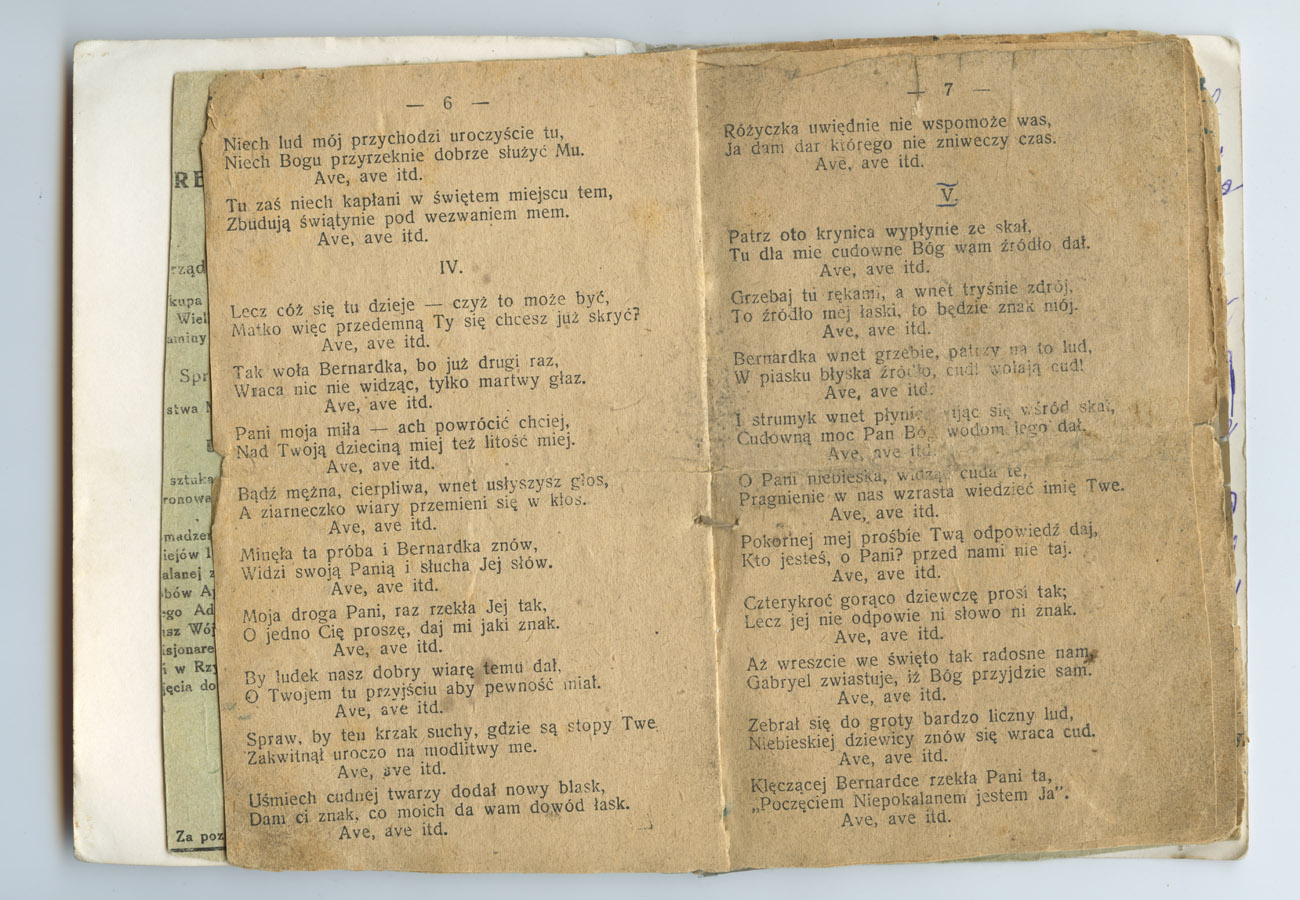 — 6 —
Niech lud mój przychodzi uroczyście tu,
Niech Bogu przyrzeknie dobrze służyć Mu.
Ave, ave itd.
Tu zaś niech kapłani w świętem miejscu tem,
Zbudują świątynie pod wezwaniem mem.
Ave, ave itd.
IV.
Lecz cóż się tu dzieje — czyż to może być,
Matko więc przedemną Ty się chcesz już skryć?
Ave, ave itd.
Tak woła Bernardka, bo już drugi raz,
Wraca nic nie widząc, tylko martwy głaz.
Ave, ave itd.
Pani moja miła — ach powrócić chciej,
Nad Twoją dzieciną miej też litość miej.
Ave, ave itd.
Bądź mężna, cierpliwa, wnet usłyszysz głos,
A ziarneczko wiary przemieni się w kłos.
Ave, ave itd.
Minęła ta próba i Bernardka znów,
Widzi swoją Panią i słucha Jej słów.
Ave, ave itd.
Moja droga Pani, raz rzekła Jej tak,
O jedno Cię proszę, daj mi jaki znak.
Ave, ave itd.
By ludek nasz dobry wiarę temu dał,
O Twojem tu przyjściu aby pewność miał.
Ave, ave itd.
Spraw, by ten krzak suchy, gdzie są stopy Twe
Zakwitnął uroczo na modlitwy me.
Ave, ave itd.
Uśmiech cudnej twarzy dodał nowy blask,
Dam ci znak, co moich da wam dowód łask.
Ave, ave itd.
— 7 —
Różyczka uwiędnie nie wspomoże was,
Ja dam dar którego nie zniweczy czas.
Ave, ave itd.
V.
Patrz oto krynica wypłynie ze skał,
Tu dla mie cudowne Bóg wam źródło dał.
Ave, ave itd.
Grzebaj tu rękami, a wnet tryśnie zdrój,
To źródło mej łaski, to będzie znak mój.
Ave, ave itd.
Bernardka wnet grzebie, patrzy na to lud,
W piasku błyska źródło, cud! wołają cud!
Ave, ave itd.
I strumyk wnet płynie wijąc się wśród skał,
Cudowną moc Pan Bóg wodom jego dał.
Ave, ave itd.
O Pani niebieska, widząc cuda te,
Pragnienie w nas wzrasta wiedzieć imię Twe.
Ave, ave itd.
Pokornej mej prośbie Twą odpowiedź daj,
Kto jesteś, o Pani? przed nami nie taj.
Ave, ave itd.
Czterykroć gorąco dziewczę prosi tak;
Lecz jej nie odpowie ni słowo ni znak.
Ave, ave itd.
Aż wreszcie we święto tak radosne nam,
Gabryel zwiastuje, iż Bóg przyjdzie sam.
Ave, ave itd.
Zebrał się do groty bardzo liczny lud,
Niebieskiej dziewicy znów się wraca cud.
Ave, ave itd.
Klęczącej Bernardce rzekła Pani ta,
„Poczęciem Niepokalanem jestem Ja".
Ave, ave itd.